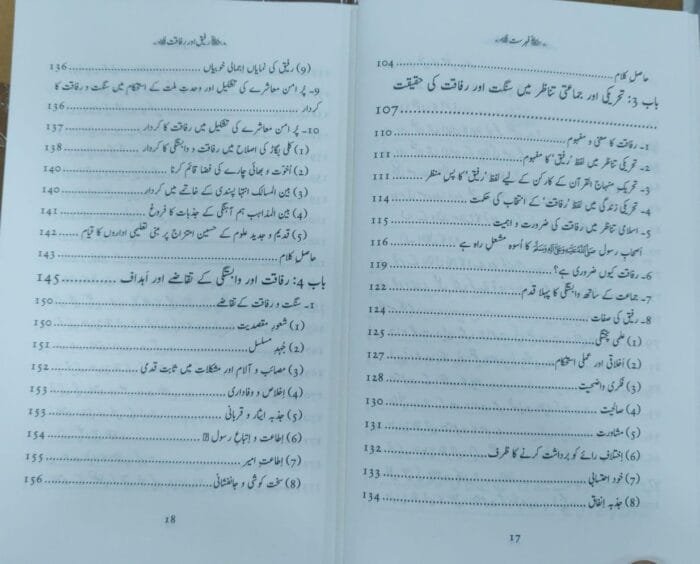 فہرست
حاصل کلام ........ 104
باب 3: تحریکی اور جماعتی تناظر میں سنگت اور رفاقت کی حقیقت
........ 107
1۔ رفاقت کا معنی و مفہوم ........ 110
2۔ تحریکی تناظر میں لفظ ’رفیق‘ کا مفہوم ........ 111
3۔ تحریک منہاج القرآن کے کارکن کے لیے لفظ ’رفیق‘ کا پس منظر ........ 111
4۔ تحریکی زندگی میں لفظ ’رفاقت‘ کے انتخاب کی حکمت ........ 114
5۔ اسلامی تناظر میں رفاقت کی ضرورت و اہمیت ........ 115
اصحابِ رسول ﷺ کا اُسوہ مشعلِ راہ ہے ........ 116
6۔ رفاقت کیوں ضروری ہے؟ ........ 119
7۔ جماعت کے ساتھ وابستگی کا پہلا قدم ........ 122
8۔ رفیق کی صفات ........ 124
(1) علمی پختگی ........ 125
(2) اَخلاقی اور عملی استحکام ........ 127
(3) فکری واضحیت ........ 128
(4) صالحیت ........ 130
(5) مشاورت ........ 131
(6) اِختلافِ رائے کو برداشت کرنے کا ظرف ........ 132
(7) خود احتسابی ........ 133
(8) جذبہ اِنفاق ........ 134
17
رفیق اور رفاقت
(9) رفیق کی نمایاں اِجمالی خوبیاں ........ 136
9۔ پُر امن معاشرے کی تشکیل اور وحدتِ ملت کے استحکام میں سنگت و رفاقت کا
کردار ........ 136
10۔ پُر امن معاشرے کی تشکیل میں رفاقت کا کردار ........ 137
(1) کلی بگاڑ کی اصلاح میں رفاقت و وابستگی کا کردار ........ 138
(2) اُخوّت و بھائی چارے کی فضا قائم کرنا ........ 140
(3) بین المسالک انتہا پسندی کے خاتمے میں کردار ........ 140
(4) بین المذاہب ہم آہنگی کے جذبات کا فروغ ........ 141
(5) قدیم و جدید علوم کے حسین امتزاج پر مبنی تعلیمی اداروں کا قیام ........ 142
حاصل کلام ........ 143
باب 4: رفاقت اور وابستگی کے تقاضے اور اَہداف ........ 145
1۔ سنگت و رفاقت کے تقاضے ........ 150
(1) شعورِ مقصدیت ........ 150
(2) جُہدِ مسلسل ........ 151
(3) مصائب و آلام اور مشکلات میں ثابت قدمی ........ 152
(4) اِخلاص و وفاداری ........ 153
(5) جذبہ ایثار و قربانی ........ 153
(6) اطاعت و اِتباعِ رسول ........ 154
(7) اِطاعتِ امیر ........ 155
(8) سخت کوشی و جانفشانی ........ 156
18